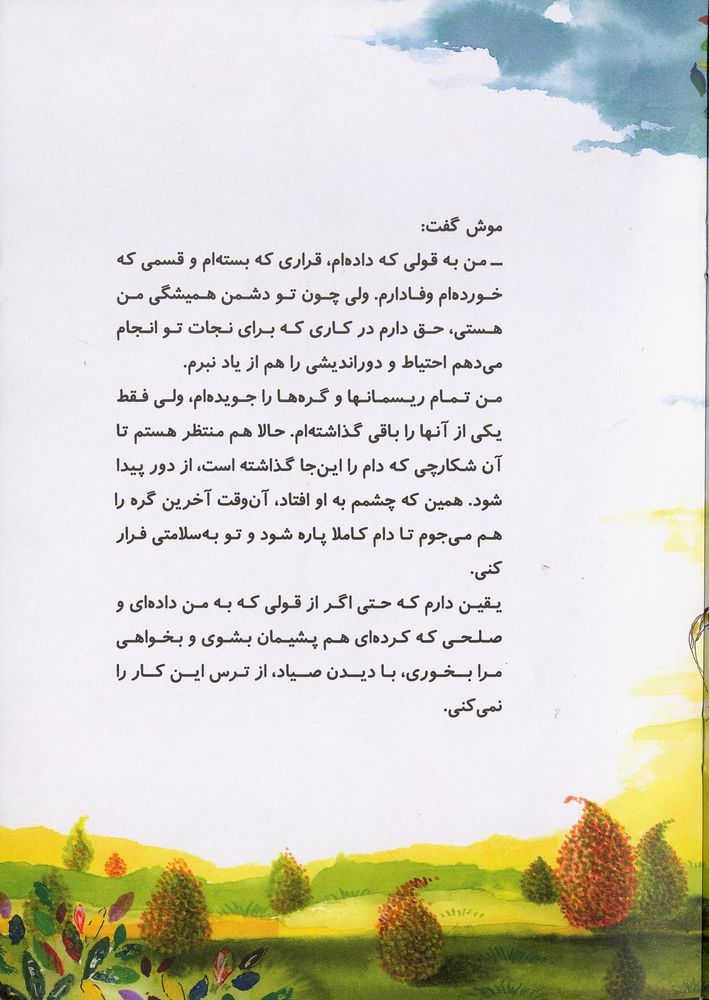 موش گفت:
ــ من به قولی که داده‌ام، قراری که بسته‌ام و قسمی که
خورده‌ام وفادارم. ولی چون تو دشمن همیشگی من
هستی، حق دارم در کاری که برای نجات تو انجام
می‌دهم احتیاط و دوراندیشی را هم از یاد نبرم.
من تمام ریسمانها و گره‌ها را جویده‌ام، ولی فقط
یکی از آنها را باقی گذاشته‌ام. حالا هم منتظر هستم تا
آن شکارچی که دام را این‌جا گذاشته است، از دور پیدا
شود. همین که چشمم به او افتاد، آن‌وقت آخرین گره را
هم می‌جوم تا دام کاملا پاره شود و تو به‌سلامتی فرار
کنی.
یقین دارم که حتی اگر از قولی که به من داده‌ای و
صلحی که کرده‌ای هم پشیمان بشوی و بخواهی
مرا بخوری، با دیدن صیاد، از ترس این کار را
نمی‌کنی.